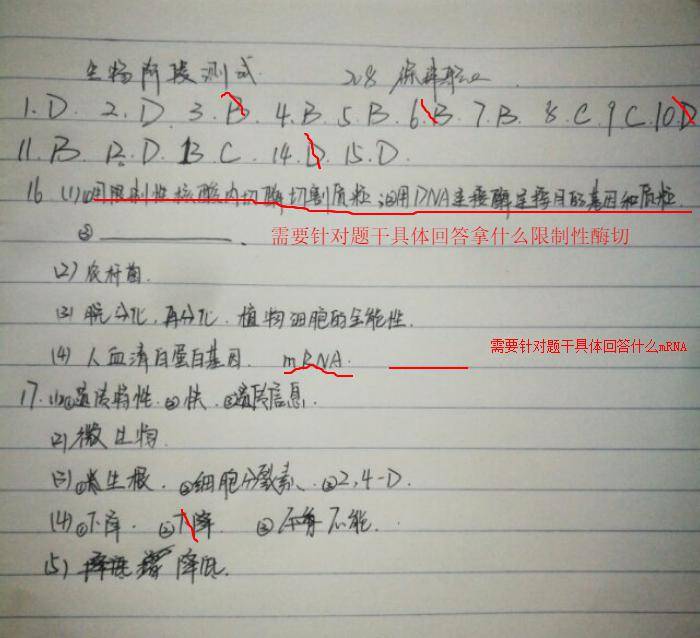 生物阶段测试
1.D. 2.D. 3.B 4.B. 5.B. 6.B. 7.B. 8.C. 9.C. 10.D
11.B 12.D. 13 C. 14.D. 15.D.
16 (1)①用限制性核酸内切酶切割质粒 用DNA连接酶连接目的基因和质粒.
② 需要针对题干具体回答拿什么限制性酶切
(2)农杆菌.
(3)脱分化.再分化.植物细胞的全能性.
(4)人血清白蛋白基因. mRNA. 需要针对题干具体回答什么mRNA
17.(1)①遗传特性.②快.③遗传信息.
(2)微生物.
(3)①生根.②细胞分裂素.③2,4-D.
(4)①下降.②下降.③不能.
(5)降低.